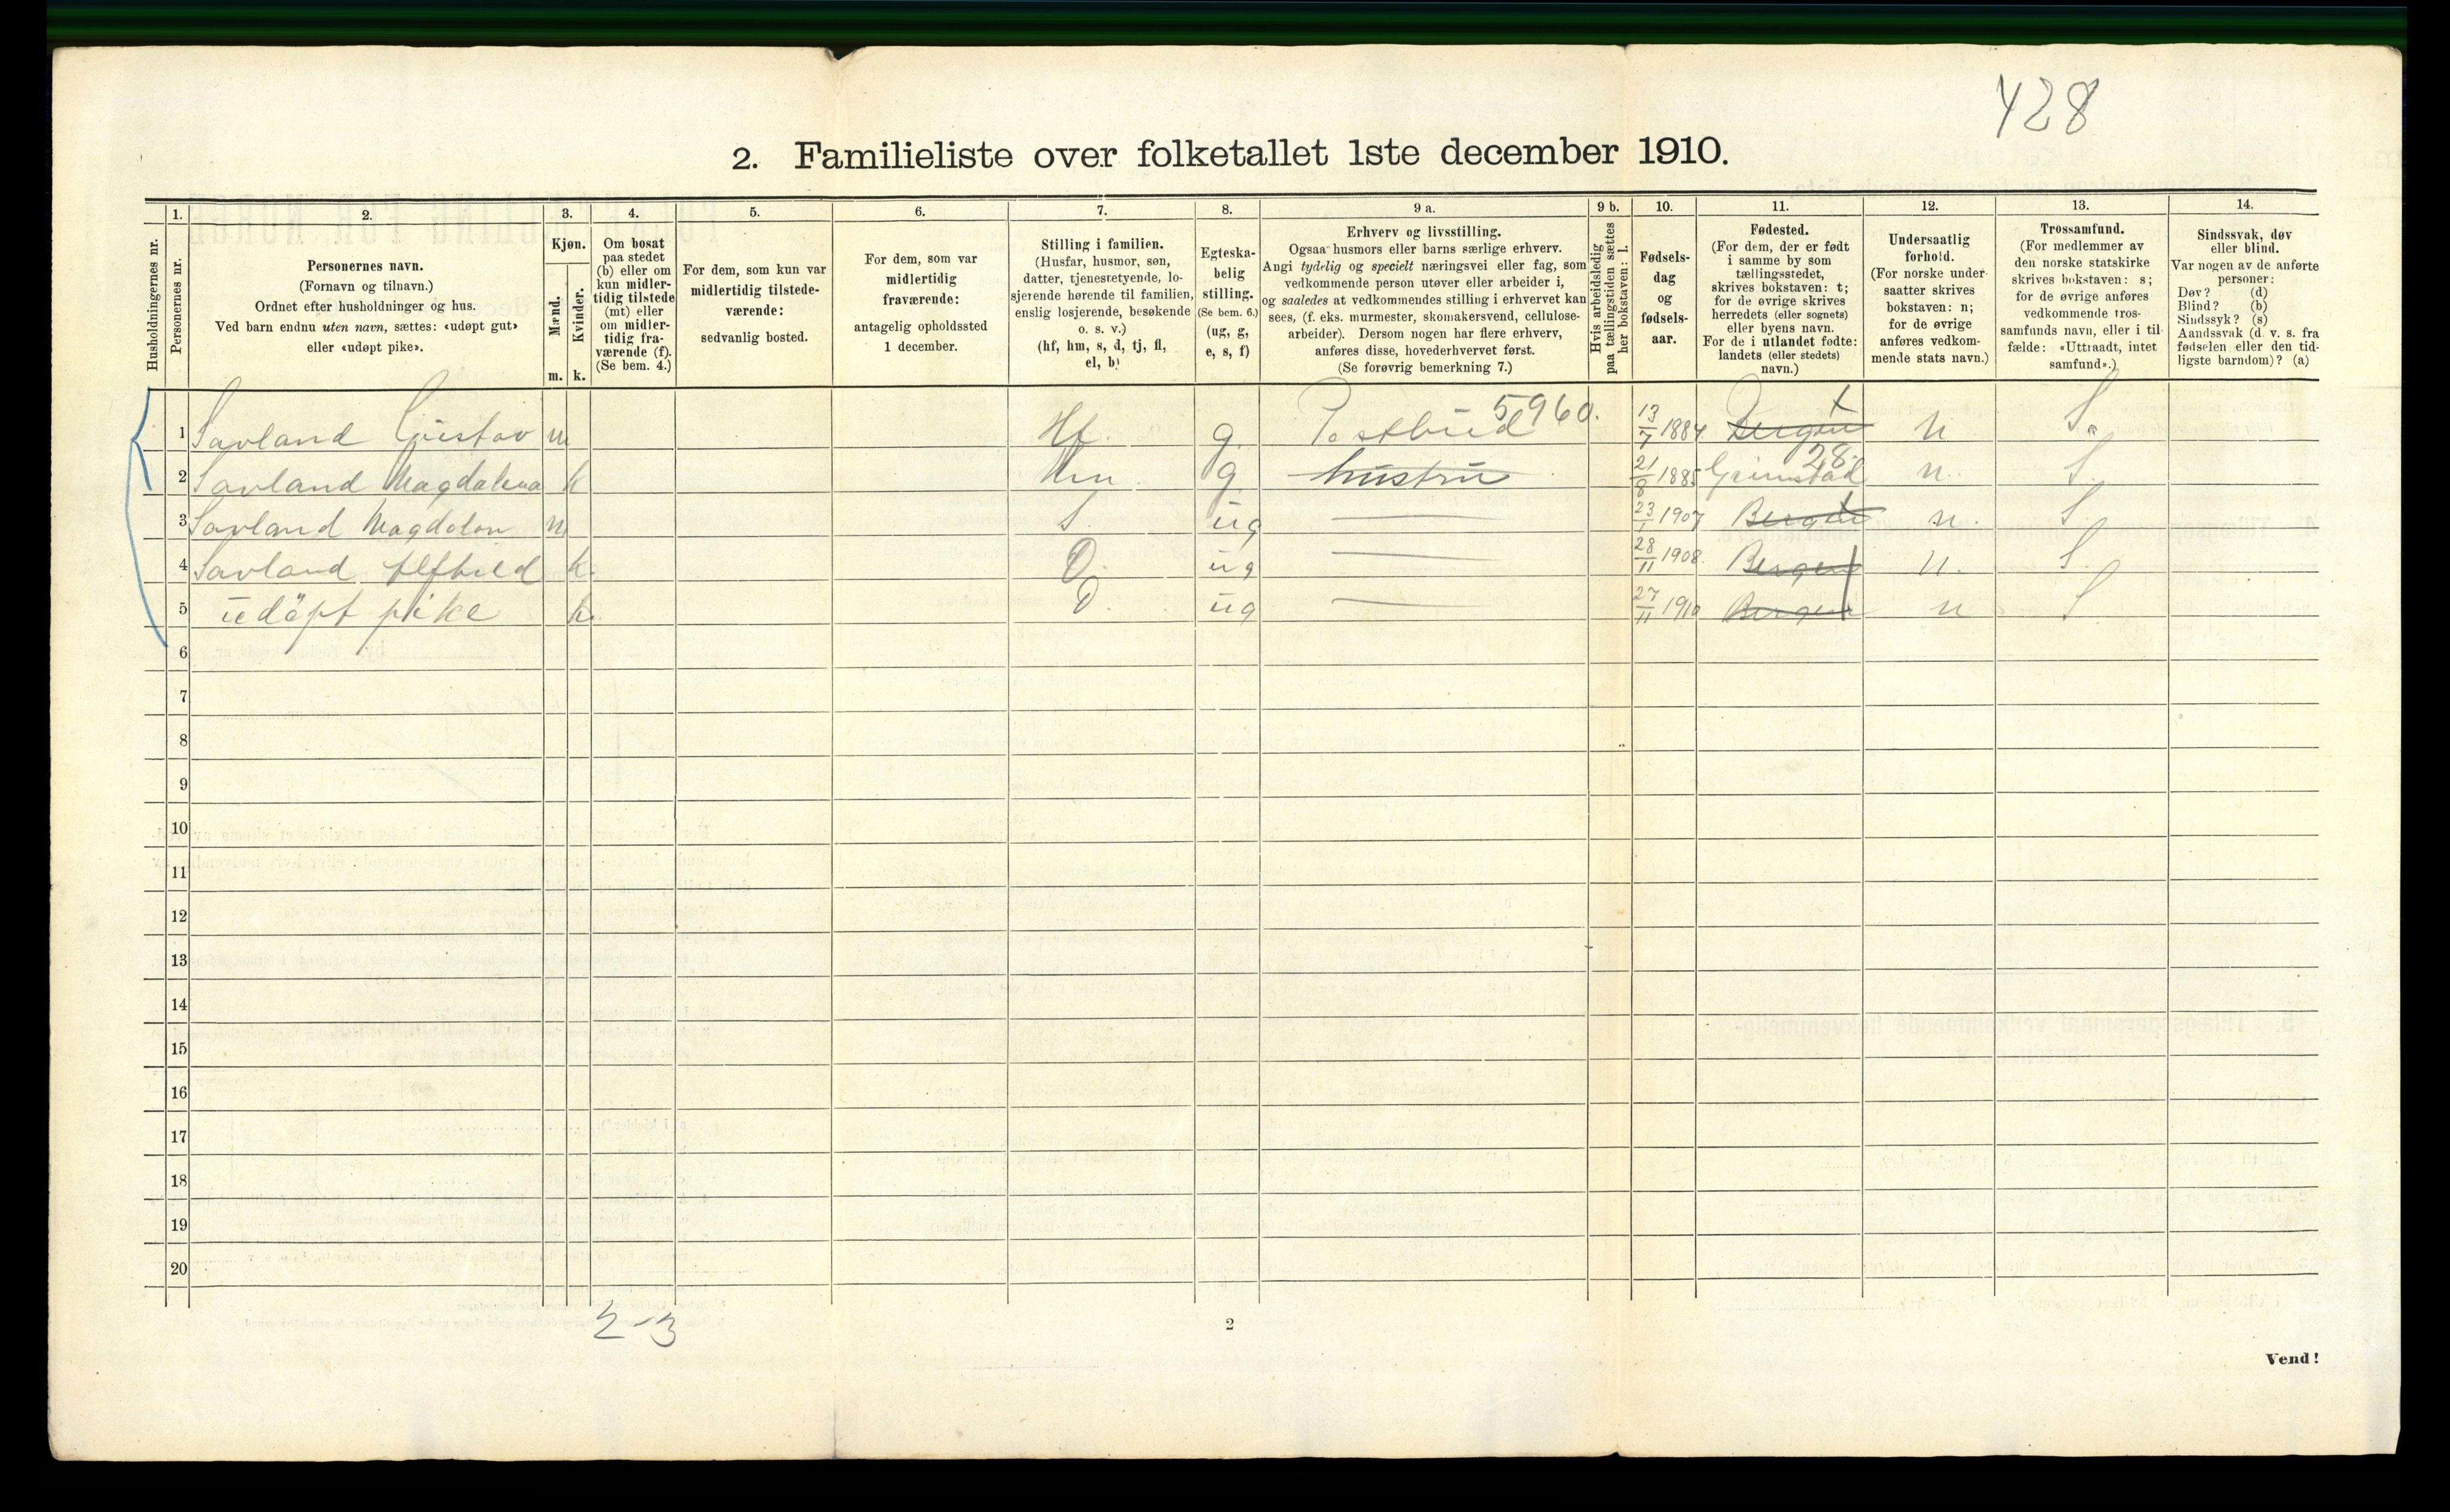 428
2. Familieliste over folketallet 1ste december 1910.
Husholdningernes nr.
1.
Personernes nr.
2.
Personernes navn.
(Fornavn og tilnavn.)
Ordnet efter husholdninger og hus.
Ved barn endnu uten navn, sættes: «udøpt gut»
eller «udøpt pike».
3.
Kjøn.
Mænd.
m.
Kvinder.
k.
4.
Om bosat
paa stedet
(b) eller om
kun midler-
tidig tilstede
(mt) eller
om midler-
tidig fra-
værende (f).
(Se bem. 4.)
5.
For dem, som kun var
midlertidig tilstede-
værende:
sedvanlig bosted.
6.
For dem, som var
midlertidig
fraværende:
antagelig opholdssted
1 december.
7.
Stilling i familien.
(Husfar, husmor, søn,
datter, tjenestetyende, lo-
sjerende hørende til familien,
enslig losjerende, besøkende
o. s. v.)
(hf, hm, s, d, tj, fl,
el, b)
8.
Egteska-
belig
stilling.
(Se bem. 6.)
(ug, g,
e, s, f)
9 a.
Erhverv og livsstilling.
Ogsaa husmors eller barns særlige erhverv.
Angi tydelig og specielt næringsvei eller fag, som
vedkommende person utøver eller arbeider i,
og saaledes at vedkommendes stilling i erhvervet kan
sees, (f. eks. murmester, skomakersvend, cellulose-
arbeider). Dersom nogen har flere erhverv,
anføres disse, hovederhvervet først.
(Se forøvrig bemerkning 7.)
9 b.
Hvis arbeidsledig
paa tællingstiden sættes
her bokstaven: l.
10.
Fødsels-
dag
og
fødsels-
aar.
11.
Fødested.
(For dem, der er født
i samme by som
tællingsstedet,
skrives bokstaven: t;
for de øvrige skrives
herredets (eller sognets)
eller byens navn.
For de i utlandet fødte:
landets (eller stedets)
navn.)
12.
Undersaatlig
forhold.
(For norske under-
saatter skrives
bokstaven: n;
for de øvrige
anføres vedkom-
mende stats navn.)
13.
Trossamfund.
(For medlemmer av
den norske statskirke
skrives bokstaven: s;
for de øvrige anføres
vedkommende tros-
samfunds navn, eller i til-
fælde: «Uttraadt, intet
samfund».)
14.
Sindssvak, døv
eller blind.
Var nogen av de anførte
personer:
Døv? (d)
Blind? (b)
Sindssyk? (s)
Aandssvak (d. v. s. fra
fødselen eller den tid-
ligste barndom)? (a)
1 Savland Gustav m Hf. g. Postbud 5960. 13/7 1884 Bergen t n S.
2 Savland Magdalena k Hm g hustru 21/8 1885 Grimstad 28. n. S.
3 Savland Magdolon m S. ug 23/1 1907 Bergen t n. S.
4 Savland Alfhild k. D. ug 28/11 1908. Bergen t n. S.
5 udöpt pike k. D. ug 27/11 1910 Bergen t n S
6
7
8
9
10
11
12
13
14
15
16
17
18
19
20
2-3
2
Vend!